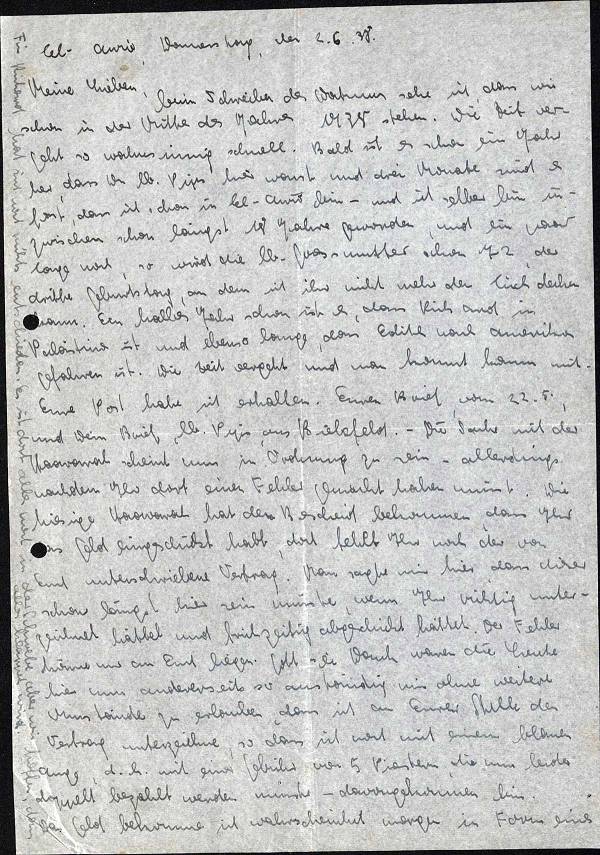 El-Auric, Donnerstag, den 2.6.38.
Meine Lieben, beim Schreiben des Datums sehe ich, dass wir
schon in der Mitte des Jahres 1938 stehen. Die Zeit ver-
geht so wahnsinnig schnell. Bald ist es schon ein Jahr
her, dass Du lb. Pips hier warst und drei Monate sind es
fast, dass ich schon in El-Auric bin - und ich selber bin in-
zwischen schon längst 18 Jahre geworden, und ein paar
Tage noch, so wird die lb. Grossmutter schon 72, der
dritte Geburtstag, an dem ich ihr nicht mehr den Tisch decken
kann. Ein halbes Jahr schon ist es, dass Richard in
Palästina ist und ebenso lange, dass Edith nach Amerika
gefahren ist. Die Zeit vergeht und man kommt kaum mit.
Eure Post habe ich erhalten. Euren Brief vom 22.5.,
und Dein Brief, lb. Pips aus Bielefeld. - Die Sache mit der
Haavarah scheint nun in Ordnung zu sein - allerdings
nachdem Ihr dort einen Fehler gemacht haben müsst. Die
hiesige Haavarah hat den Bescheid bekommen, dass Ihr
das Geld eingeschickt habt, dort fehlt Ihr noch der von
Euch unterschriebene Vertrag. Man sagte mir hier, dass dieser
schon längst hier sein müsste, wenn Ihr richtig unter-
zeichnet hättet und frühzeitig abgeschickt hättet. Der Fehler
könne nur an Euch liegen. Gott sei Dank waren die Leute
hier nun andererseits so anständig mir ohne weitere
Umstände zu erlauben, dass ich an Eurer Stelle den
Vertrag unterzeichne, so dass ich noch mit einem blauen
Auge, d.h. mit einer Gebühr von 5 Piastern, die nun leider
doppelt bezahlt werden musste - davongekommen bin.
Das Geld bekomme ich wahrscheinlich morgen in Form eines
Für Richard hat sich noch nichts entschieden. Es ist dort alles noch in der Schwebe aber wir hoffen, dass